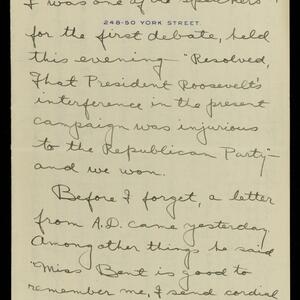 I was one of the speakers
248-50 YORK STREET.
for the first debate, held
this evening - "Resolved,
That President Roosevelt's
interference in the present
campaign was injurious
to the Republican Party" -
and we won.
Before I forget, a letter
from A.D. came yesterday
Among other things he said
"Miss Bent is good to
remember me, I send cordial